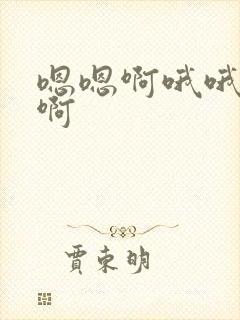 嗯嗯啊哦哦
啊
贾东明